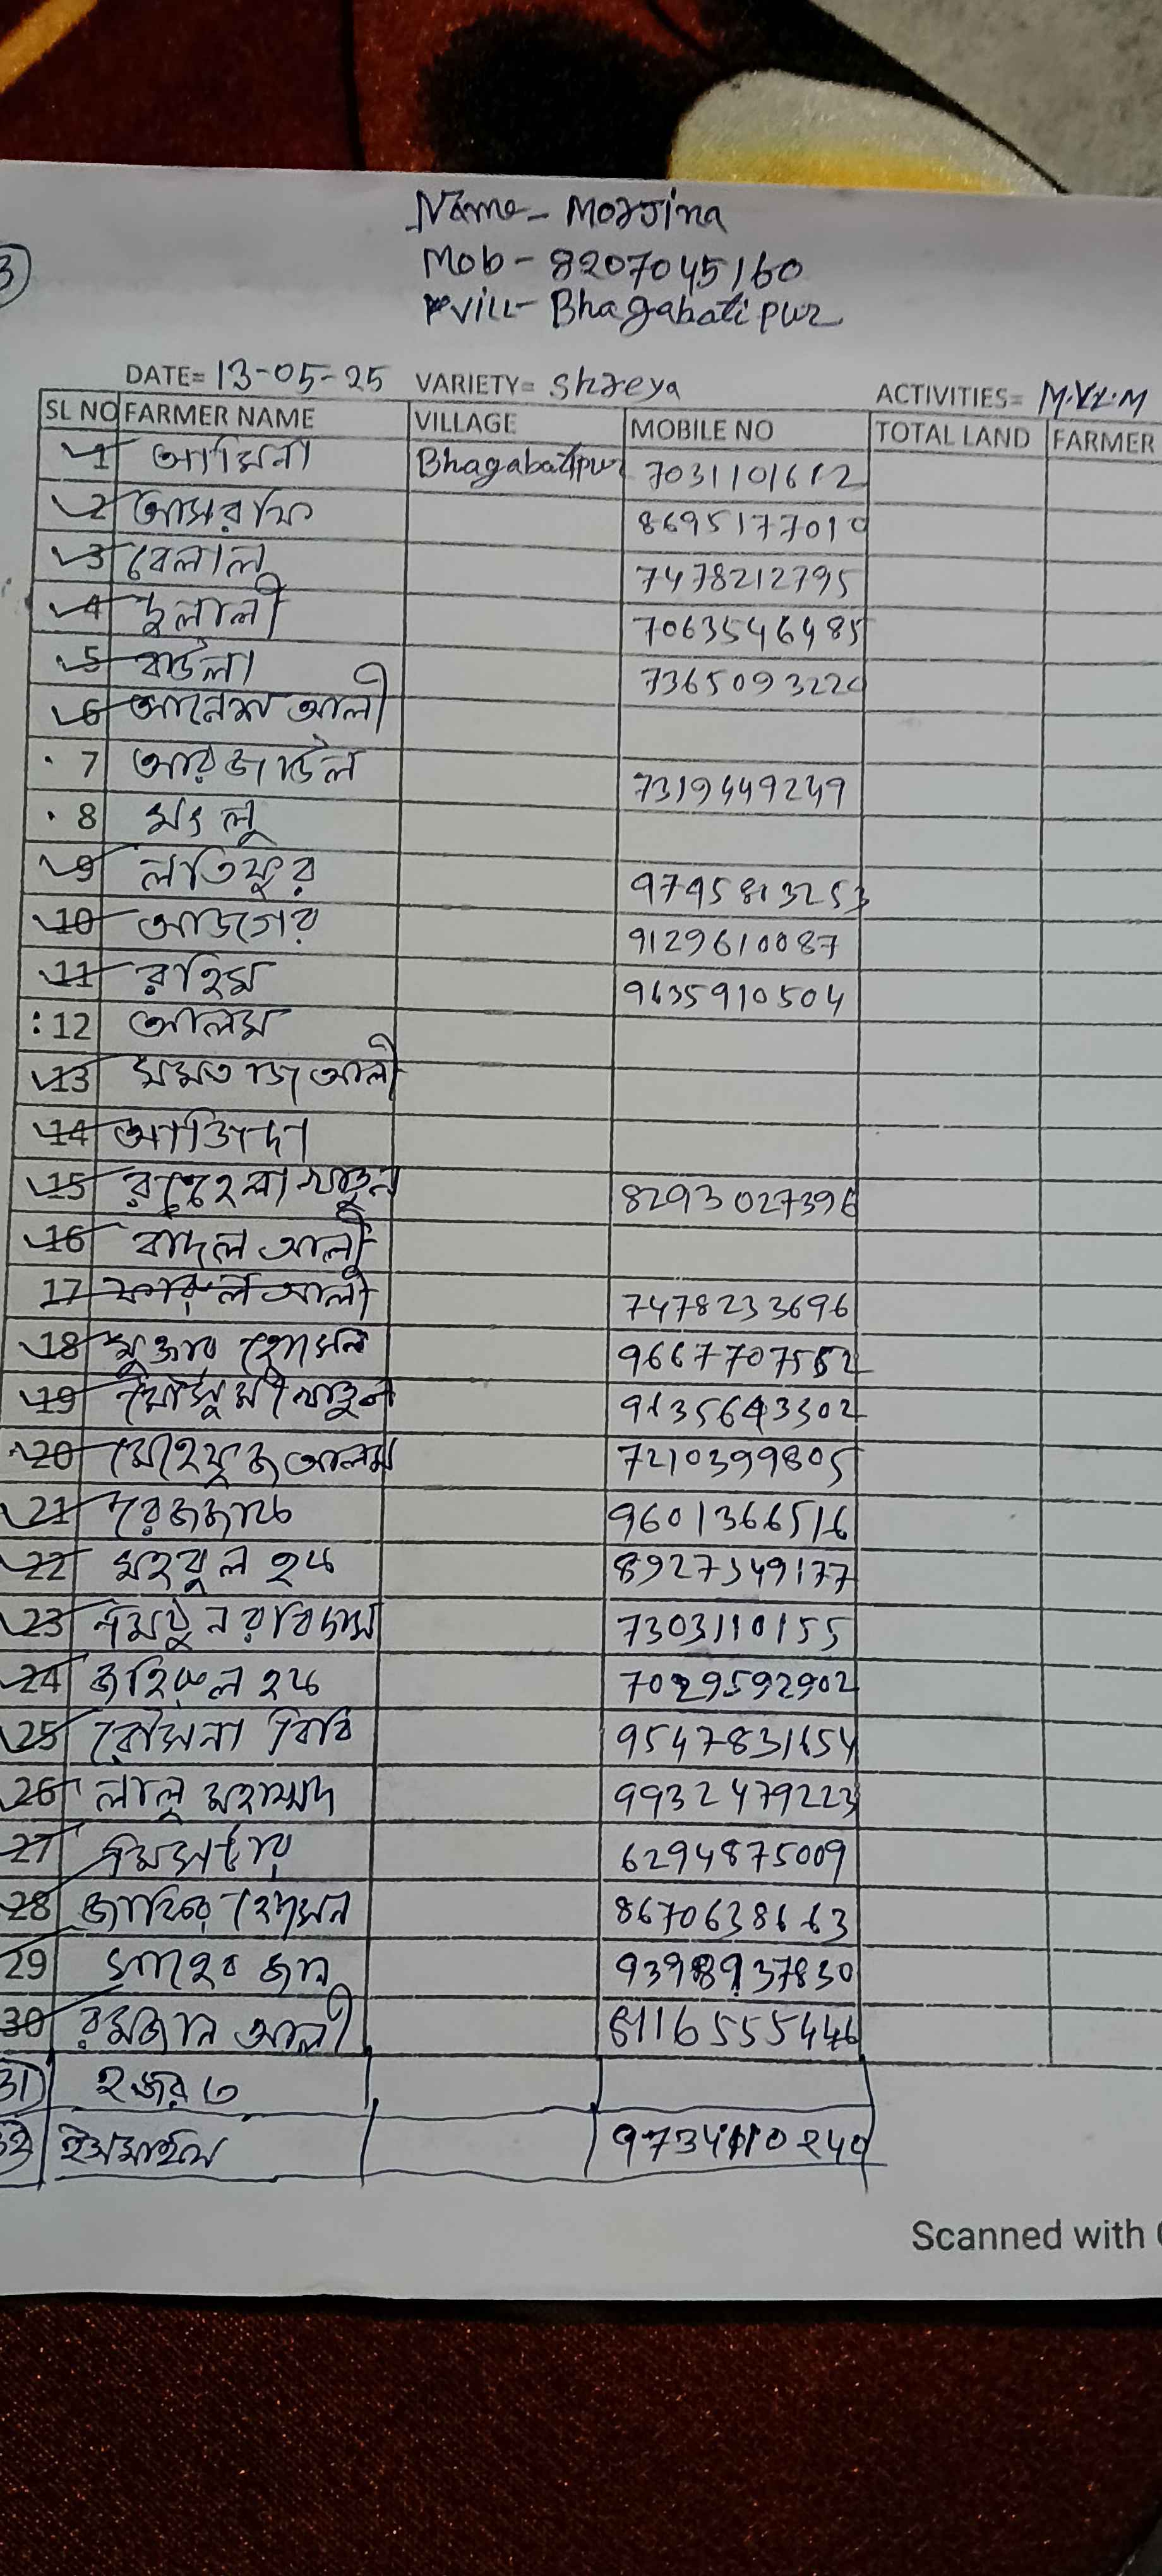 3
Name- Morjina
Mob- 8207045160
vill- Bhagabatipur
DATE= 13-05-25 VARIETY= Shreya ACTIVITIES= M.V.L.M
SL NO FARMER NAME VILLAGE MOBILE NO TOTAL LAND FARMER
1 আমিনা Bhagabatipur 7031101612
2 আসরাফি 869517701
3 বেলাল 7478212795
4 দুলালী 7063546485
5 বাউলা 736509322
6 আনেশ আলী
7 আরজাউল 7319449249
8 মংলু
9 লতিফুর 9795813253
10 আজগের 9129610087
11 রহিম 9635910504
12 আলম
13 মমতাজ আলী
14 আজিদা
15 খাতুন 8293027396
16 বাদল আলী
17 আলী 7478233696
18 হোসেন 9667707552
19 মৌসুমী খাতুন 9135643302
20 মেহেফুজ আলম 7210399805
21 9601366516
22 মহবুল হক 8927349177
23 রবিদাস 7303110155
24 জহিরুল হক 7029592902
25 রোসনা বিবি 9547831654
26 লালু মহাম্মদ 9932479223
27 6294875009
28 জাকির হোসেন 8670638663
29 সাহেব জান 9398937830
30 রমজান আলী 8116555446
31 হজরত
32 ইসমাইল
Scanned with